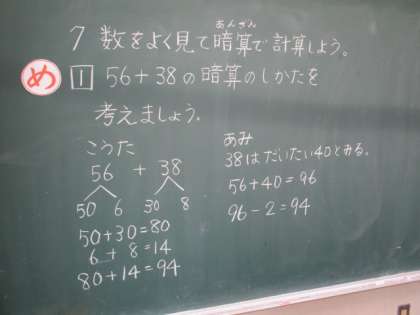 7 数をよく見て暗算で計算しよう。
あんざん
め 1 56+38の暗算のしかたを
考えましょう。
こうた
56 + 38
50 6 30 8
50+30=80
6+8=14
80+14=94
あみ
38はだいたい40とみる。
56+40=96
96-2=94